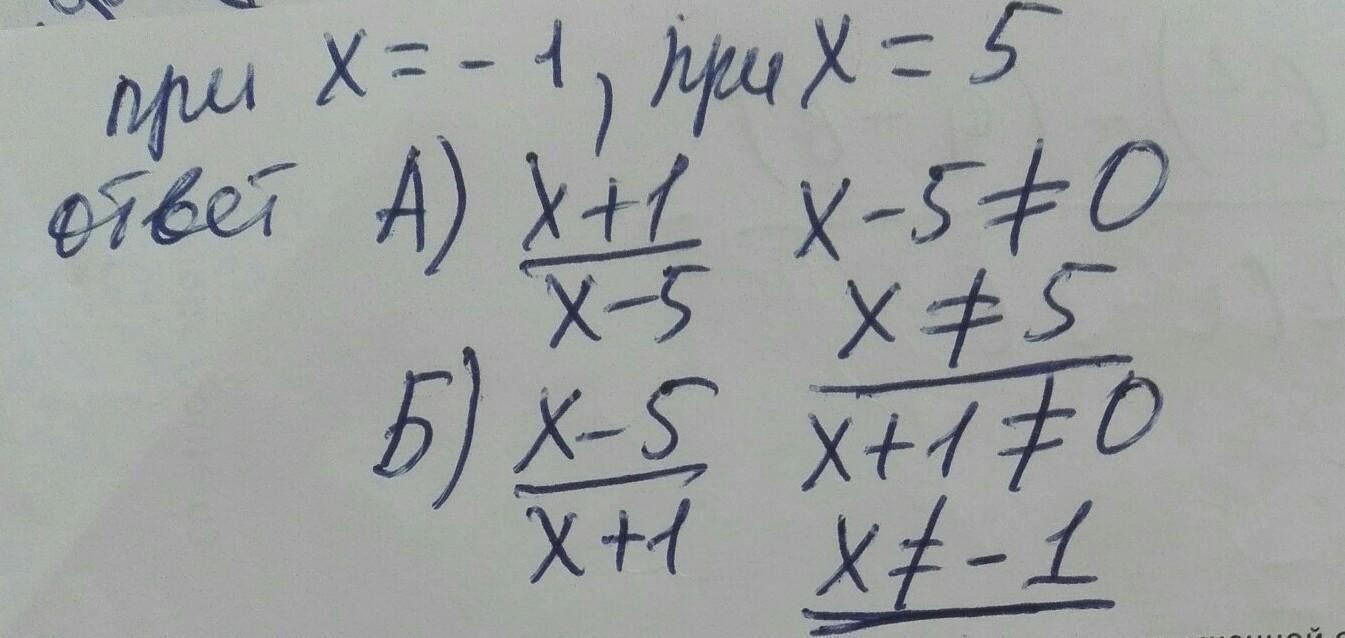 при x = - 1, при x = 5
ответ А) x+1/x-5 x-5≠0
x≠5
Б) x-5/x+1 x+1≠0
x≠-1